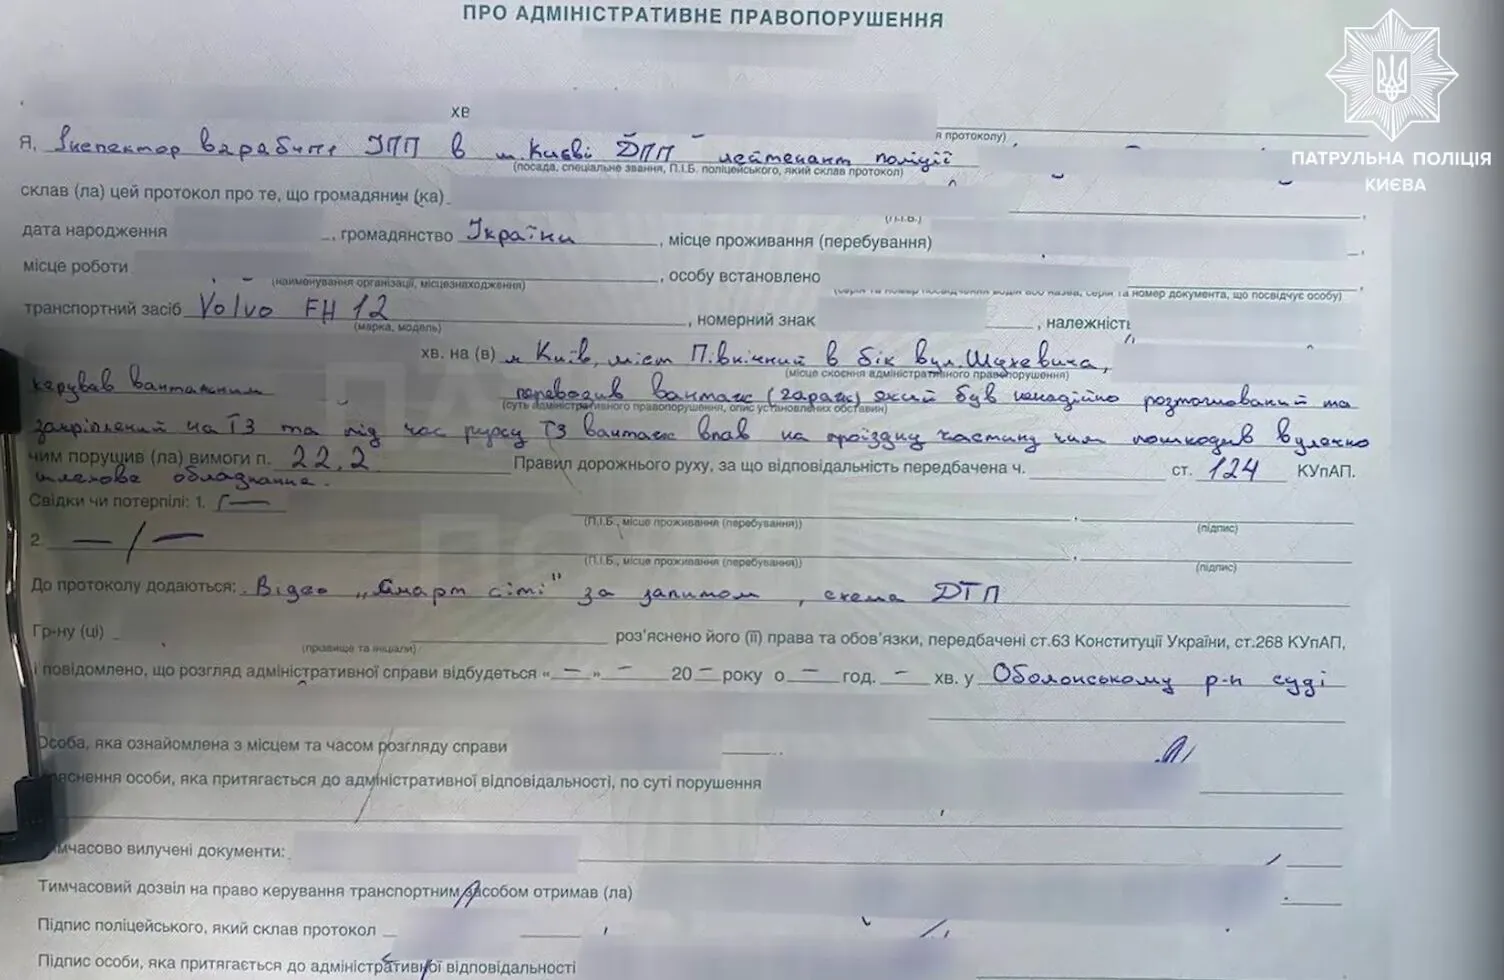 ПРО АДМІНІСТРАТИВНЕ ПРАВОПОРУШЕННЯ
ПАТРУЛЬНА ПОЛІЦІЯ
КИЄВА
хв
я протоколу)
Я, Інспектор ІПП в м. Києві ДПП лейтенант поліції
(посада, спеціальне звання, П.І.Б. поліцейського, який склав протокол)
склав (ла) цей протокол про те, що громадянин (ка)
(П.І.Б.)
дата народження , громадянство України , місце проживання (перебування)
місце роботи , особу встановлено
(найменування організації, місцезнаходження)
номер документа, що посвідчує особу)
транспортний засіб Volvo FH 12 , номерний знак , належність
(марка, модель)
хв. на (в) м Київ, міст Північний в бік вул. Шухевича,
(місце скоєння адміністративного правопорушення)
керував вантажним перевозив вантаж (гараж) який був ненадійно розташований та
(суть адміністративного правопорушення, опис установлених обставин)
закріплений на ТЗ та під час руху ТЗ вантаж впав на проїздну частину чим пошкодив вулично
чим порушив (ла) вимоги п. 22.2 Правил дорожнього руху, за що відповідальність передбачена ч. ст. 124 КУпАП.
шляхове обладнання.
Свідки чи потерпілі: 1. —
(П.І.Б., місце проживання (перебування)) (підпис)
2. —/—
(П.І.Б., місце проживання (перебування)) (підпис)
До протоколу додаються: Відео „Смарт сіті" за запитом, схема ДТП
Гр-ну (ці) роз'яснено його (її) права та обов'язки, передбачені ст.63 Конституції України, ст.268 КУпАП,
(прізвище та ініціали)
і повідомлено, що розгляд адміністративної справи відбудеться «—» — 20 — року о — год. — хв. у Оболонському р-н суді
Особа, яка ознайомлена з місцем та часом розгляду справи
яснення особи, яка притягається до адміністративної відповідальності, по суті порушення
мчасово вилучені документи:
Тимчасовий дозвіл на право керування транспортним засобом отримав (ла)
Підпис поліцейського, який склав протокол
Підпис особи, яка притягається до адміністративної відповідальності